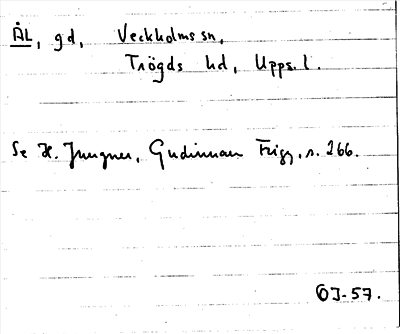 ÅL, gd, Veckholms sn,
Trögds hd, Upps. l.
Se H. Jungner, Gudinnan Frigg, s. 266.
OJ-57.